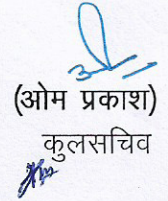 (ओम प्रकाश)
कुलसचिव